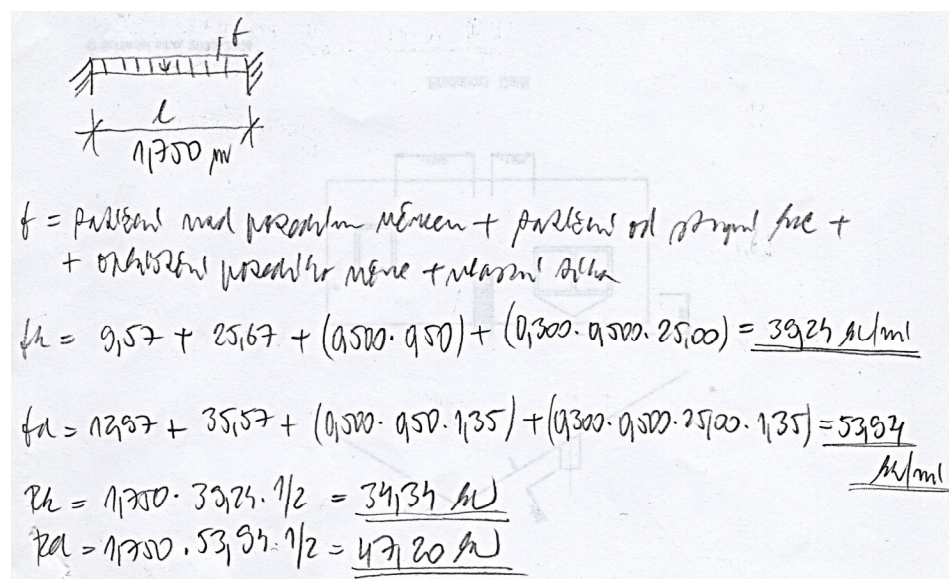 f
l
1,750 m
f = zatížení nad pozedním věncem + zatížení od stropní kce +
+ pozedního věnce + vlastní tíha
fk = 9,57 + 25,67 + (0,500 · 0,50) + (0,300 · 0,500 · 25,00) = 39,24 kN/m1
fd = 12,97 + 35,57 + (0,500 · 0,50 · 1,35) + (0,300 · 0,500 · 25,00 · 1,35) = 53,94
kN/m1
Rk = 1,750 · 39,24 · 1/2 = 34,34 kN
Rd = 1,750 · 53,94 · 1/2 = 47,20 kN